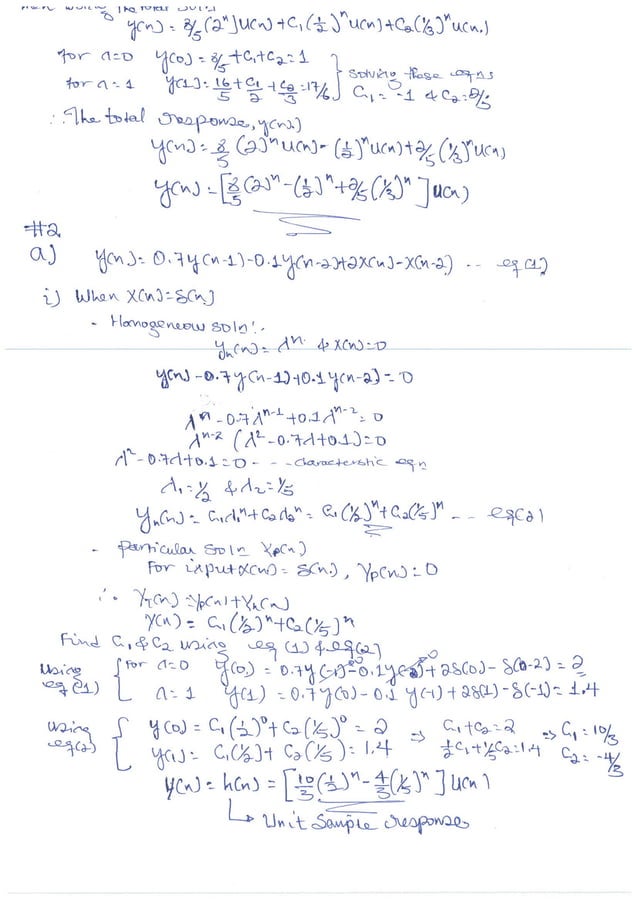 y(n) = 8/5 (2ⁿ)u(n) + C₁(½)ⁿu(n) + C₂(⅓)ⁿu(n)
for n=0 y(0) = 8/5 + C₁ + C₂ = 1
for n=1 y(1) = 16/5 + C₁/2 + C₂/3 = 17/6 } Solving these eqns
C₁ = -1 & C₂ = 2/5
∴ The total response, y(n)
y(n) = 8/5 (2)ⁿu(n) - (½)ⁿu(n) + 2/5 (⅓)ⁿu(n)
y(n) = [8/5 (2)ⁿ - (½)ⁿ + 2/5 (⅓)ⁿ] u(n)
#2
a) y(n) = 0.7y(n-1) - 0.1y(n-2) + 2x(n) - x(n-2) -- eq(1)
i) When x(n) = δ(n)
- Homogeneous soln:
yₕ(n) = λⁿ & x(n) = 0
y(n) - 0.7y(n-1) + 0.1y(n-2) = 0
λⁿ - 0.7λⁿ⁻¹ + 0.1λⁿ⁻² = 0
λⁿ⁻² (λ² - 0.7λ + 0.1) = 0
λ² - 0.7λ + 0.1 = 0 - - - characterstic eqn
λ₁ = ½ & λ₂ = ⅕
yₕ(n) = C₁λ₁ⁿ + C₂λ₂ⁿ = C₁(½)ⁿ + C₂(⅕)ⁿ -- eq(2)
- particular soln yp(n)
For input x(n) = δ(n), yp(n) = 0
∴ y_T(n) = yp(n) + yₕ(n)
y(n) = C₁(½)ⁿ + C₂(⅕)ⁿ
Find C₁ & C₂ using eq(1) & eq(2)
Using eq(1) { for n=0 y(0) = 0.7y(-1) - 0.1y(-2) + 2δ(0) - δ(0-2) = 2
n=1 y(1) = 0.7y(0) - 0.1y(-1) + 2δ(1) - δ(-1) = 1.4
Using eq(2) { y(0) = C₁(½)⁰ + C₂(⅕)⁰ = 2 ⇒ C₁+C₂=2 ⇒ C₁ = 10/3
y(1) = C₁(½) + C₂(⅕) = 1.4 ½C₁+⅕C₂=1.4 C₂ = -4/3
y(n) = h(n) = [10/3 (½)ⁿ - 4/3 (⅕)ⁿ] u(n)
↳ Unit Sample response